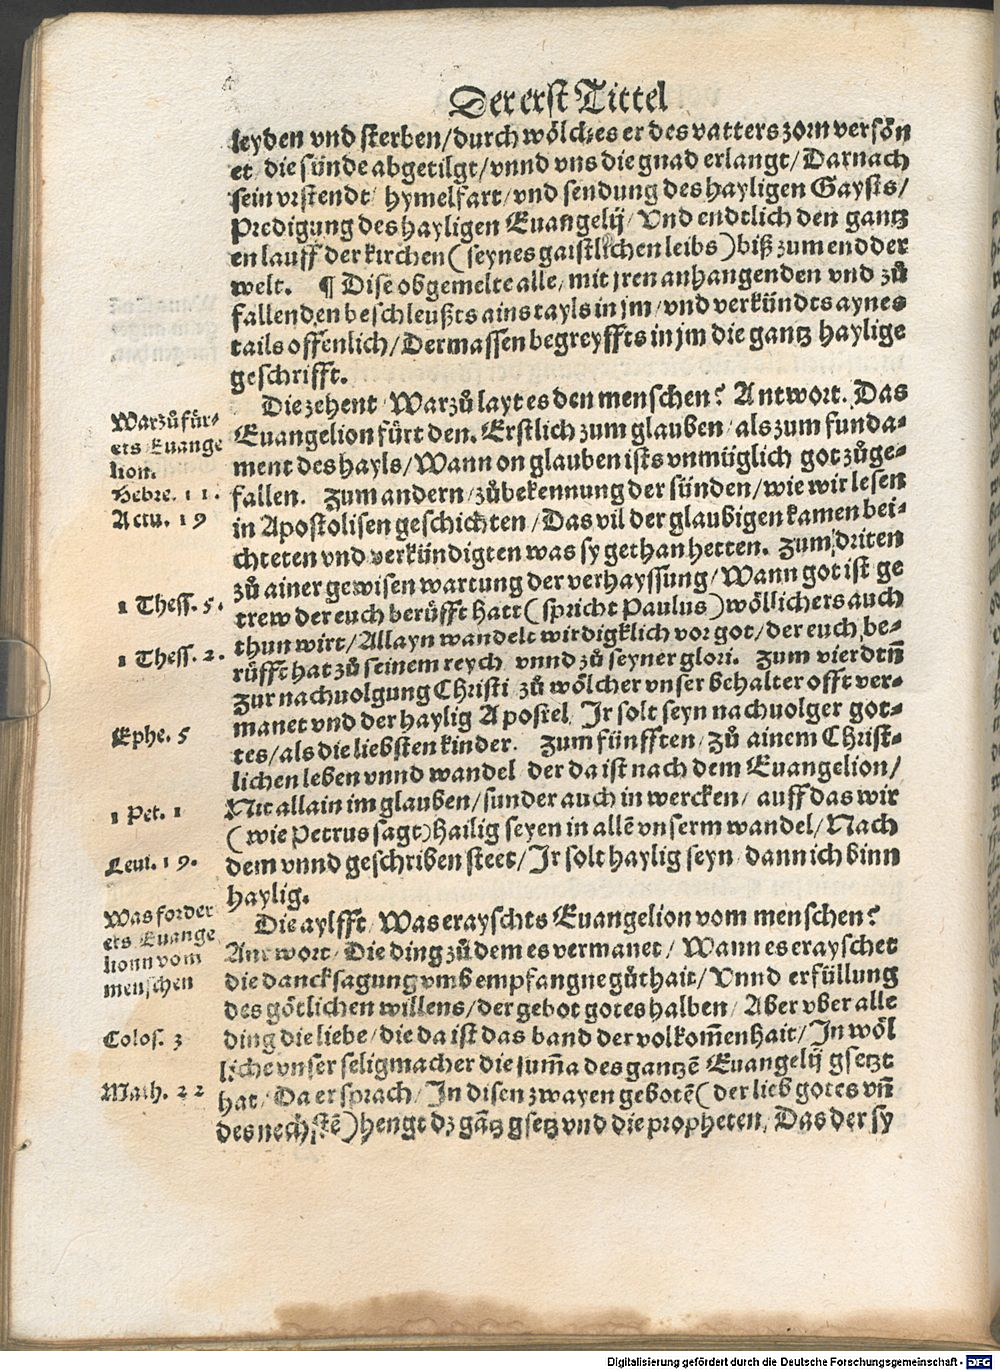 Der erst Tittel
leyden vnd sterben/durch wölches er des vatters zorn versön
et/ die sünde abgetilgt/vnnd vns die gnad erlangt/Darnach
sein vrstendt/ hymelfart/vnd sendung des hayligen Gaysts/
Predigung des hayligen Euangelij/ Vnd endtlich den gantz
en lauff der kirchen (seynes gaistlichen leibs) biß zum end der
welt. ¶ Dise obgemelte alle/ mit jren anhangenden vnd zů
fallenden beschleußts ains tayls in jm/vnd verkündts aynes
tails offenlich/Dermassen begreyffts in jm die gantz haylige
geschrifft.
Die zehent/ Warzů layt es den menschen? Antwort. Das
Euangelion fürt den. Erstlich zum glauben/als zum funda-
ment des hayls/Wann on glauben ists vnmüglich got zůge-
fallen. Zum andern/zůbekennung der sünden/wie wir lesen
in Apostolisen geschichten/Das vil der glaubigen kamen bei-
chteten vnd verkündigten was sy gethan hetten. Zum driten
zů ainer gewisen wartung der verhayssung/Wann got ist ge
trew der euch berüfft hatt (spricht Paulus) wöllich ers auch
thun wirt/Allayn wandelt wirdigklich vor got/der euch be-
rüfft hat zů seinem reych/ vnnd zů seyner glori. Zum vierdtñ
zur nachuolgung Christi/ zů wölcher vnser behalter offt ver-
manet vnd der haylig Apostel/ Jr solt seyn nachuolger got-
tes/als die liebsten kinder. Zum fünfften/ zů ainem Christ-
lichen leben vnnd wandel/ der da ist nach dem Euangelion/
Nit allain im glauben/sunder auch in wercken/ auff das wir
(wie Petrus sagt) hailig seyen in allẽ vnserm wandel/Nach
dem vnnd geschriben steet/Jr solt haylig seyn/dann ich binn
haylig.
Die aylfft/ Was erayschts Euangelion vom menschen?
Antwort/ Die ding zů dem es vermanet/ Wann es erayschet
die dancksagung vmb empfangne gůthait/Vnnd erfüllung
des götlichen willens/der gebot gotes halben/ Aber vber alle
ding die liebe/die da ist das band der volkom̃enhait/Jn wöl
liche vnser seligmacher die sum̃a des gantzẽ Euangelij gsetzt
hat/ Da er sprach/Jn disen zwayen gebotẽ (der lieb gotes vñ
des nechstẽ) hengt dz gãtz gsetz vnd die propheten/Das der sy
Warzů für-
ets Euange
lion.
Hebre. 11.
Actu. 19
1 Thess. 5.
1 Thess. 2.
Ephe. 5
1 Pet. 1
Leui. 19.
Was forder
ets Euange
lionn vom
menschen
Colos. 3
Math. 22
Digitalisierung gefördert durch die Deutsche Forschungsgemeinschaft - DFG